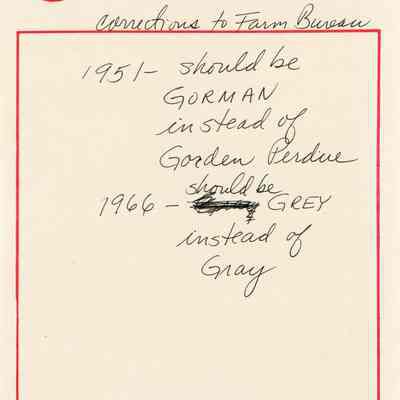 corrections to Farm Bureau
1951- should be
GORMAN
instead of
Gorden Perdue
should be
1966 - GREY
instead of
Gray